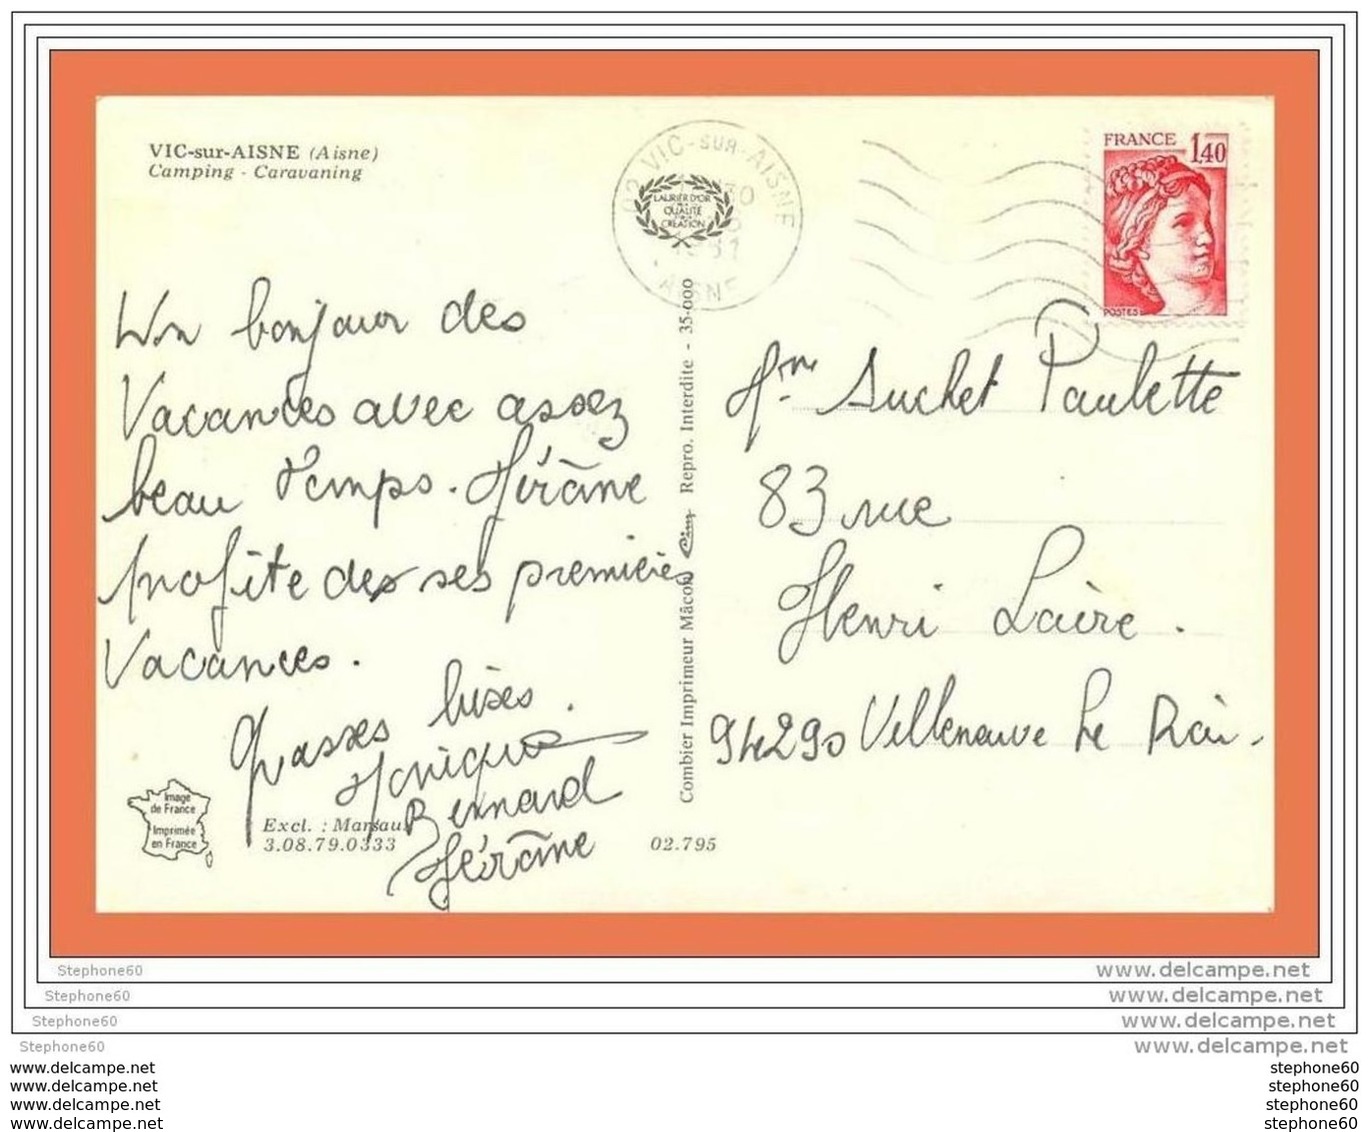 VIC-sur-AISNE (Aisne)
Camping - Caravaning
02 VIC-SUR-AISNE
AISNE
LAURIER D'OR
QUALITÉ
CRÉATION
FRANCE 1,40
POSTES
Un bonjour des
Vacances avec assez
beau temps. Jérôme
profite des ses premières
Vacances.
Grosses bises.
Monique
Bernard
Jérôme
Mme Suchet Paulette
83 rue
Henri Laire.
94290 Villeneuve Le Roi.
Combier Imprimeur Mâcon Cim Repro. Interdite - 35-000
Image
de France
Imprimée
en France
Excl. :
3.08.79.0333
02.795
Stephone60 www.delcampe.net
Stephone60 www.delcampe.net
Stephone60 www.delcampe.net
Stephone60 www.delcampe.net
www.delcampe.net stephone60
www.delcampe.net stephone60
www.delcampe.net stephone60
www.delcampe.net stephone60